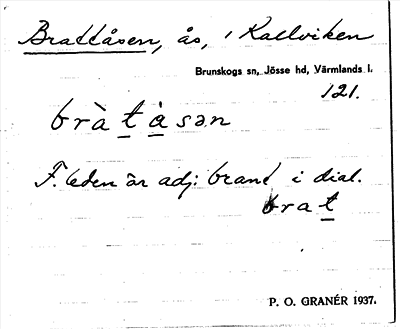 Brattåsen, ås, i Kallviken
Brunskogs sn, Jösse hd, Värmlands l.
121.
bràtàsan
F. leden är adj. brant i dial.
brat
P. O. GRANÉR 1937.